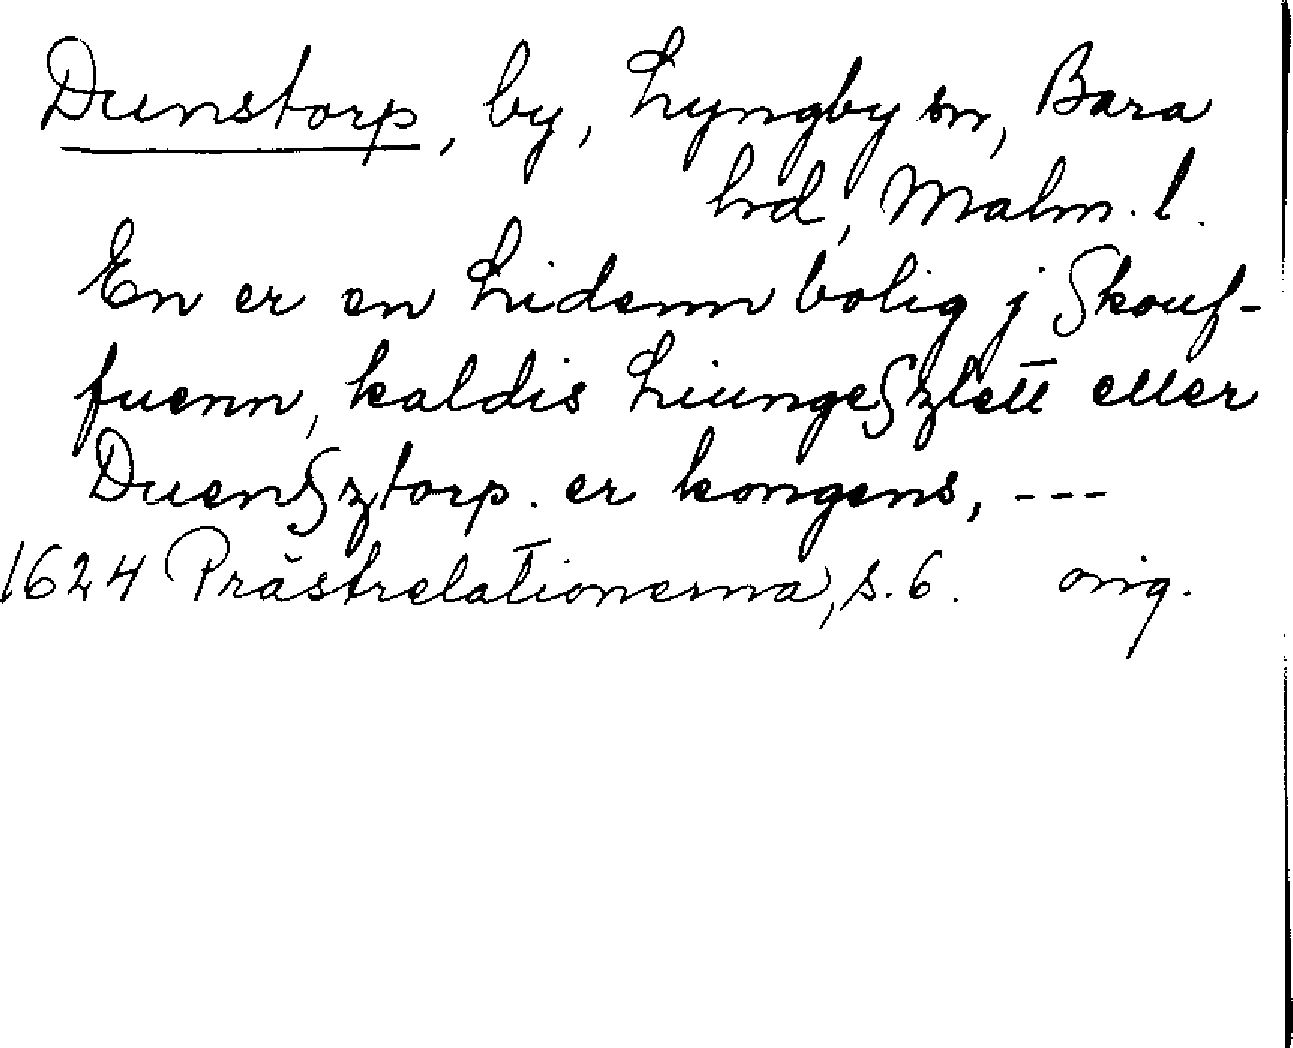 Dunstorp, by, Lyngby sn, Bara
hrd, Malm. l.
En er en Lidenn bolig j Skouf-
fuenn, kaldis LiungeSzlett eller
DuenSztorp. er kongens, ---
1624 Prästrelationerna, s. 6. orig.